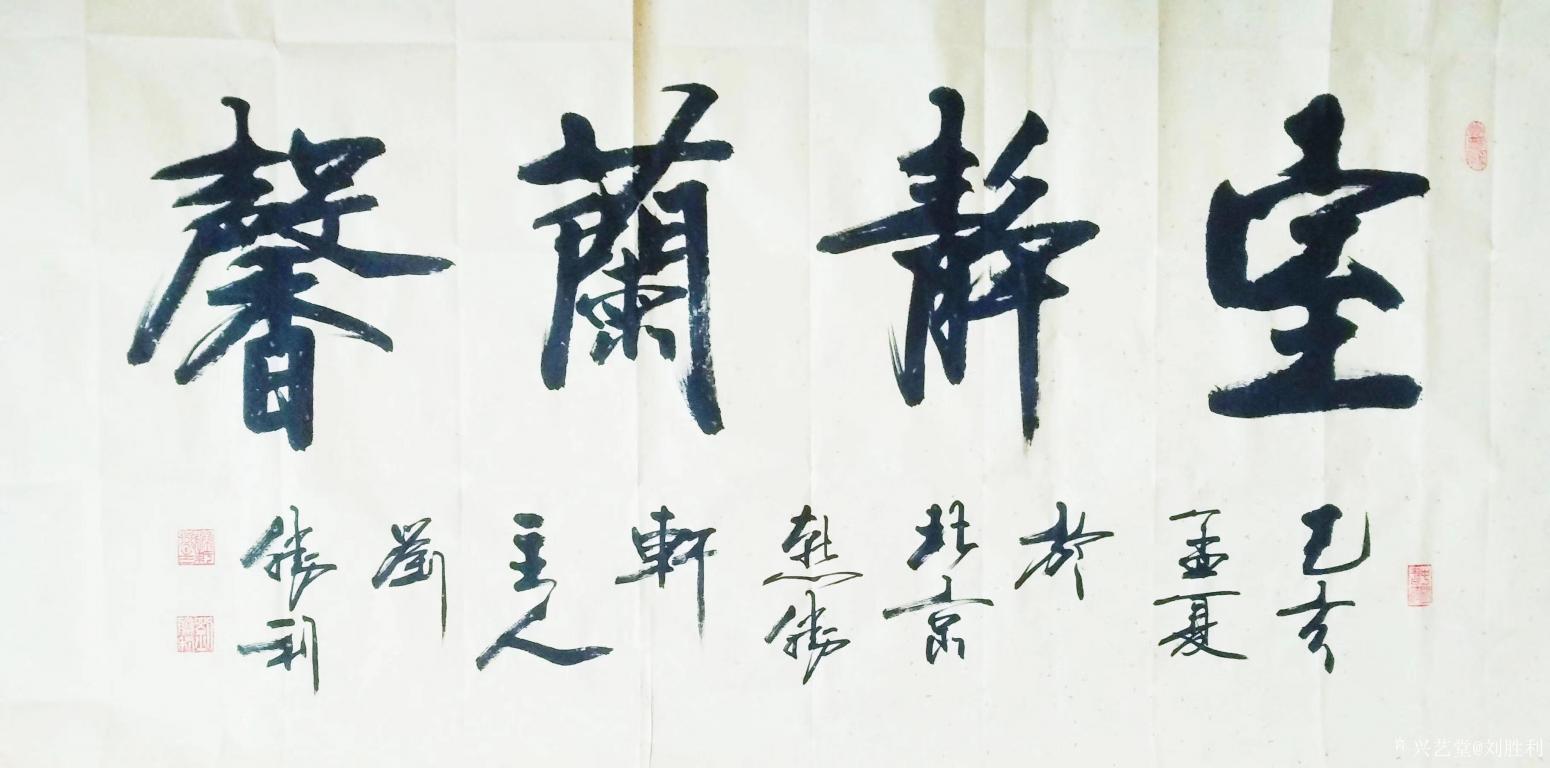 室靜蘭馨
己亥
孟夏
於
北京
懸勝
軒
主人
劉
勝利
兴艺堂@刘胜利